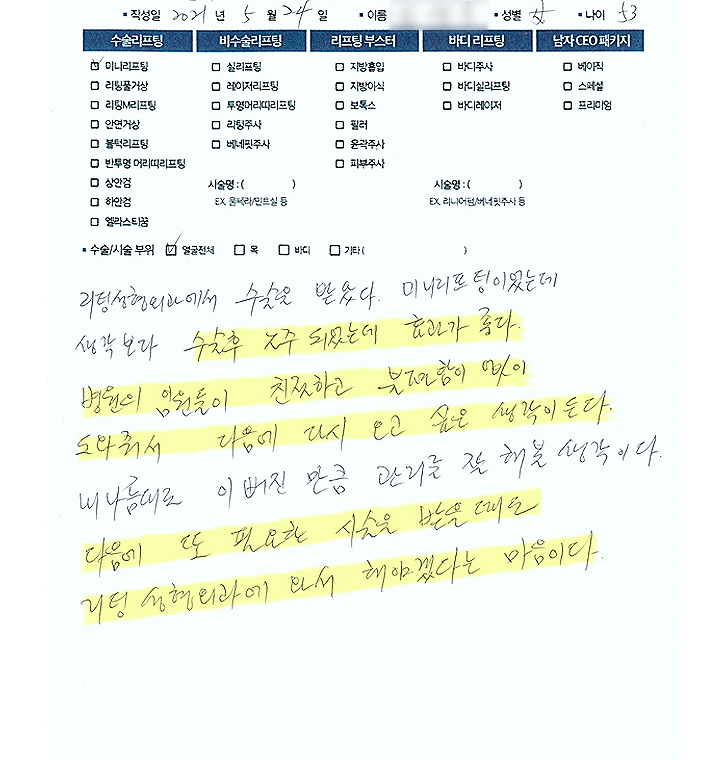 ▪ 작성일 2021 년 5 월 24 일 ▪ 이름 ▪ 성별 ▪ 나이 53
수술리프팅 비수술리프팅 리프팅 부스터 바디 리프팅 남자 CEO 패키지
☑ 미니리프팅 ☐ 실리프팅 ☐ 지방흡입 ☐ 바디주사 ☐ 베이직
☐ 리팅풀거상 ☐ 레이저리프팅 ☐ 지방이식 ☐ 바디실리프팅 ☐ 스페셜
☐ 리팅M리프팅 ☐ 투명머리띠리프팅 ☐ 보톡스 ☐ 바디레이저 ☐ 프리미엄
☐ 안면거상 ☐ 리팅주사 ☐ 필러
☐ 불턱리프팅 ☐ 베네핏주사 ☐ 윤곽주사
☐ 반투명 머리띠리프팅 ☐ 피부주사
☐ 상안검 시술명 : ( ) 시술명 : ( )
☐ 하안검 EX. 울쎄라/민트실 등 EX. 리니어펌/베네핏주사 등
☐ 엘라스티꿈
▪ 수술/시술 부위 ☑ 얼굴전체 ☐ 목 ☐ 바디 ☐ 기타 ( )
리팅성형외과에서 수술을 받았다. 미니리프팅이었는데
생각보다 수술후 2주 되었는데 효과가 좋다.
병원의 임원들이 친절하고 불편함이 없이
도와줘서 다음에 다시 오고 싶은 생각이 든다.
내나름대로 이뻐진 만큼 관리를 잘 해볼 생각이다.
다음에 또 필요한 시술을 받을 때도
리팅 성형외과에 와서 해야겠다는 마음이다.